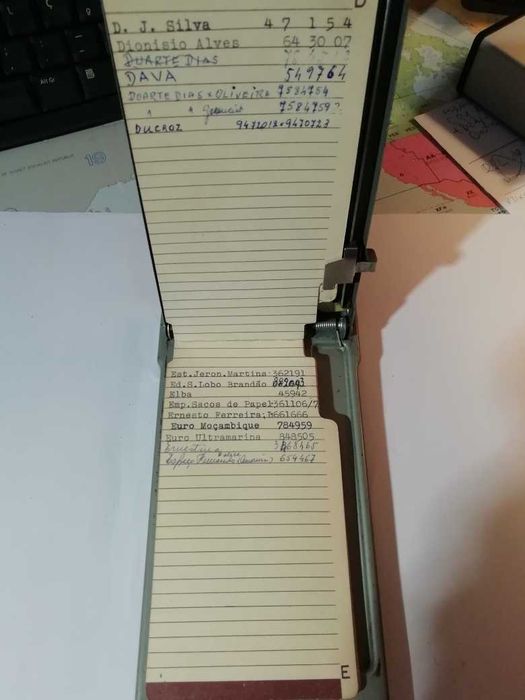 D
D. J. Silva 4 7 1 5 4
Dionisio Alves 64 30 07
DUARTE DIAS
DAVA 549764
DUARTE DIAS & OLIVEIRA 7584754
" " 7584759
DUCROZ
Est.Jeron.Martins 362191
Ed.S.Lobo Brandão
Elba 45942
Emp.Sacos de Papel 361106/7
Ernesto Ferreira, 661666
Euro Moçambique 784959
Euro Ultramarina 848505
Ernestina
654467
E